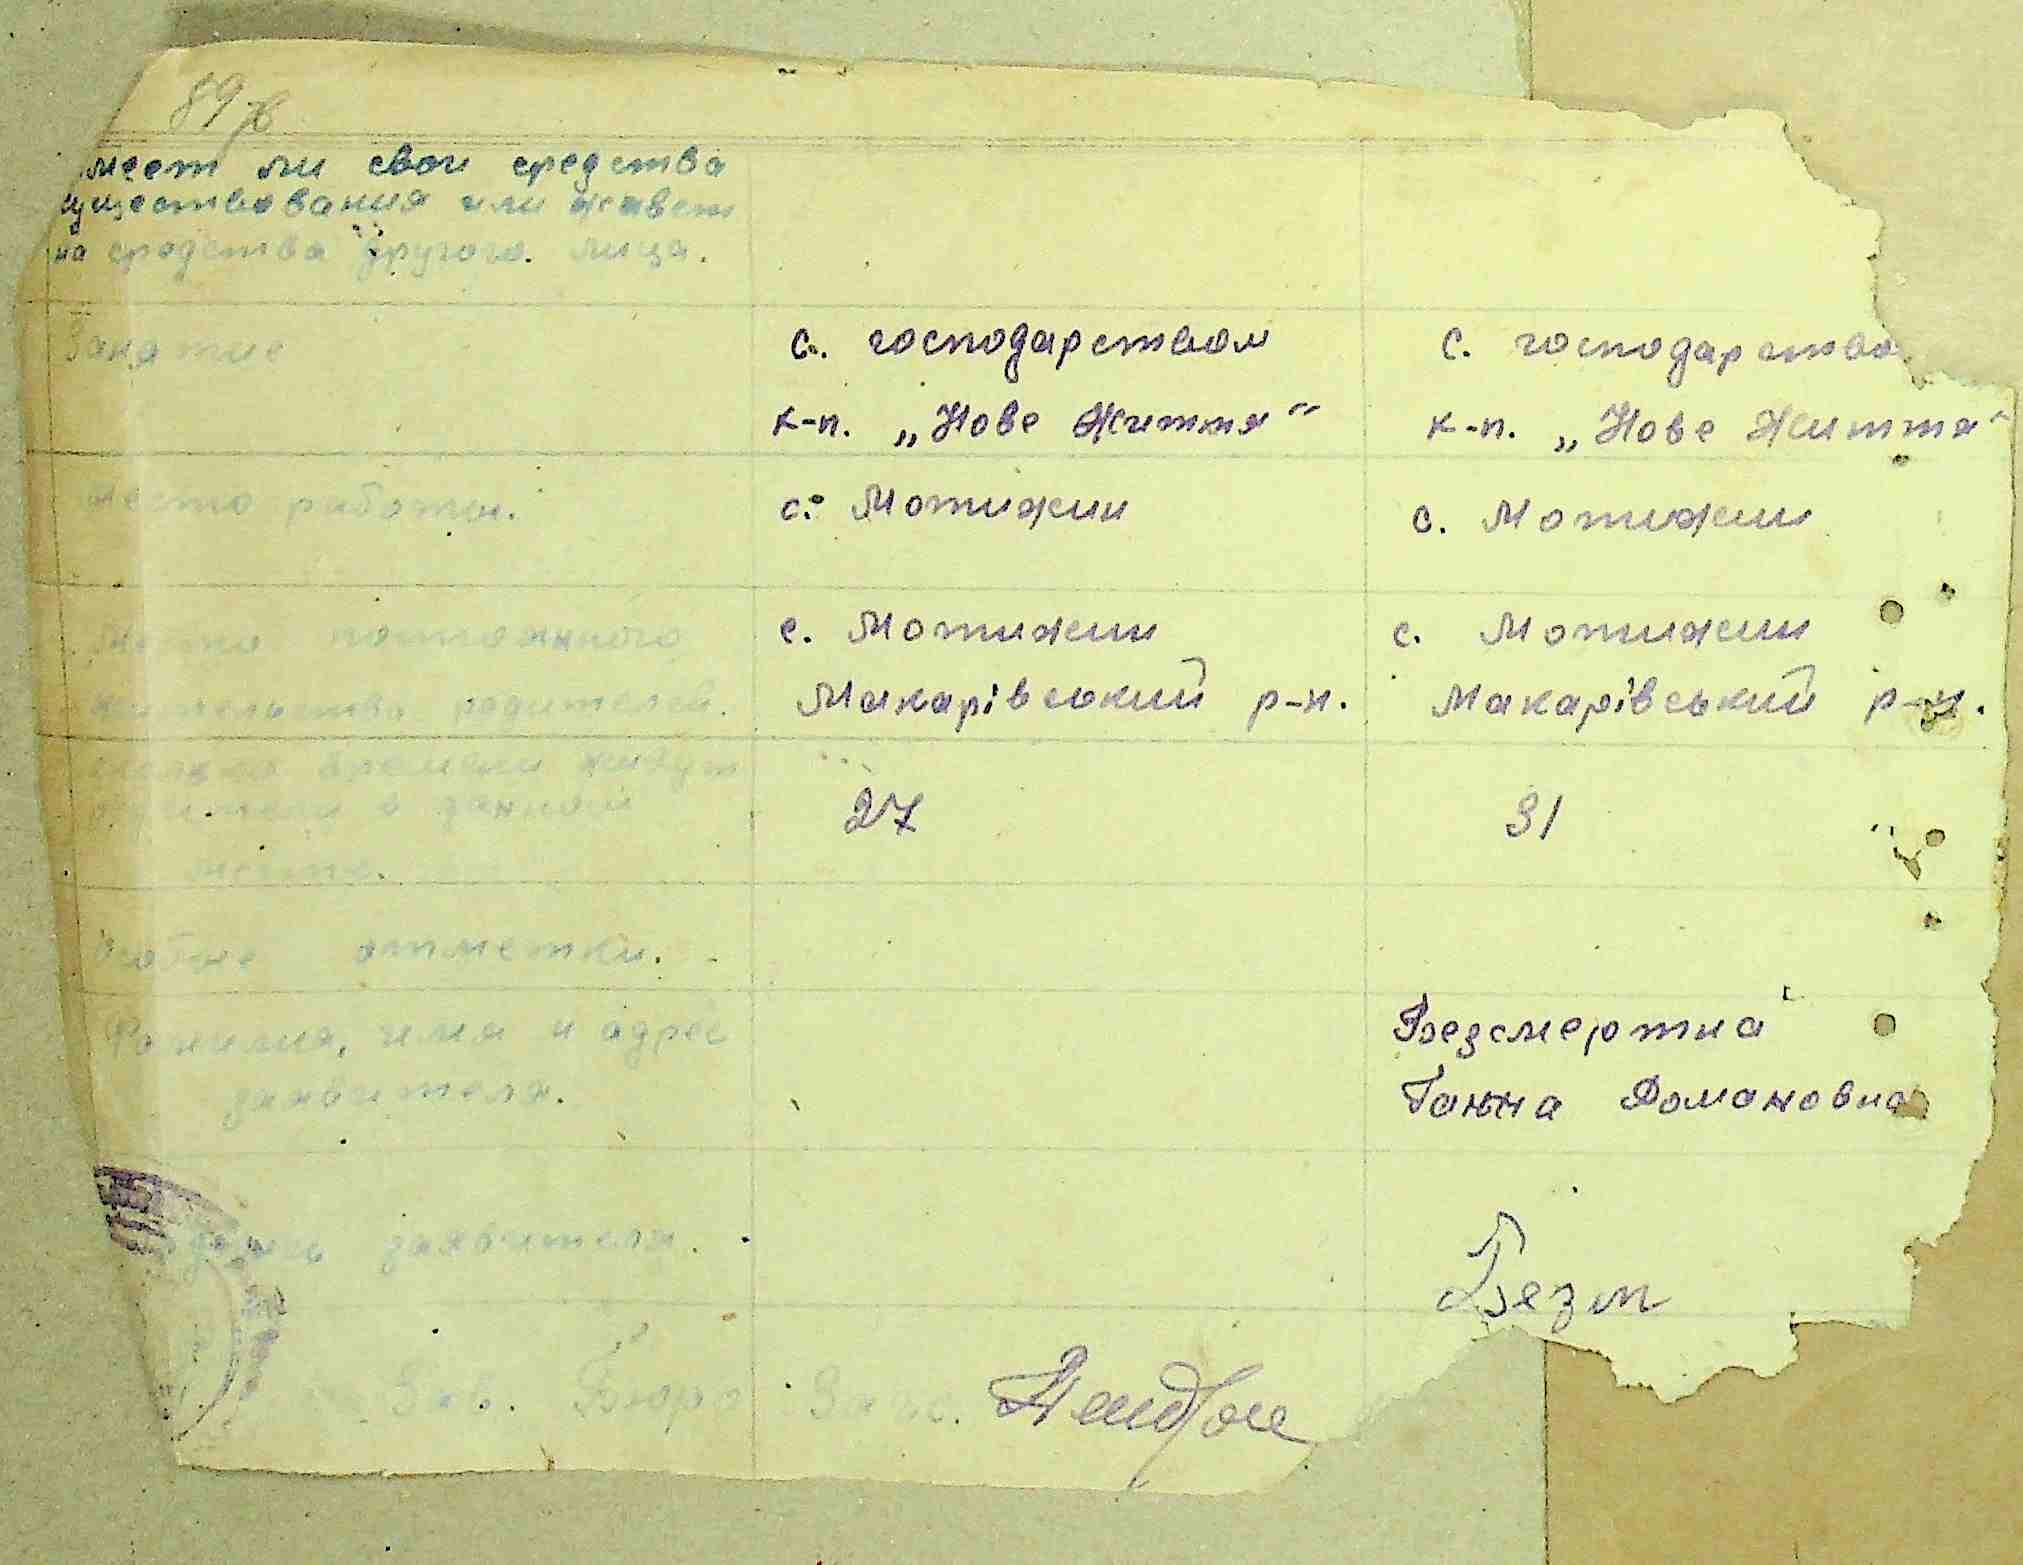 89 зв
имеет ли свои средства
существования или живет
на средства другого лица.
Занятие
с. господарством
с. господарство
к-п. „Нове Життя“
к-п. „Нове Життя“
Место работы.
с. Мотижин
с. Мотижин
Место постоянного
жительства родителей.
с. Мотижин
Макарівський р-н.
с. Мотижин
Макарівський р-н.
сколько времени живут
родители в данной
27
31
Особые отметки.
Фамилия, имя и адрес
заявителя.
Безсмертна
Ганна Романовна
Подпись заявителя.
Безм
Зав. Бюро Загс.